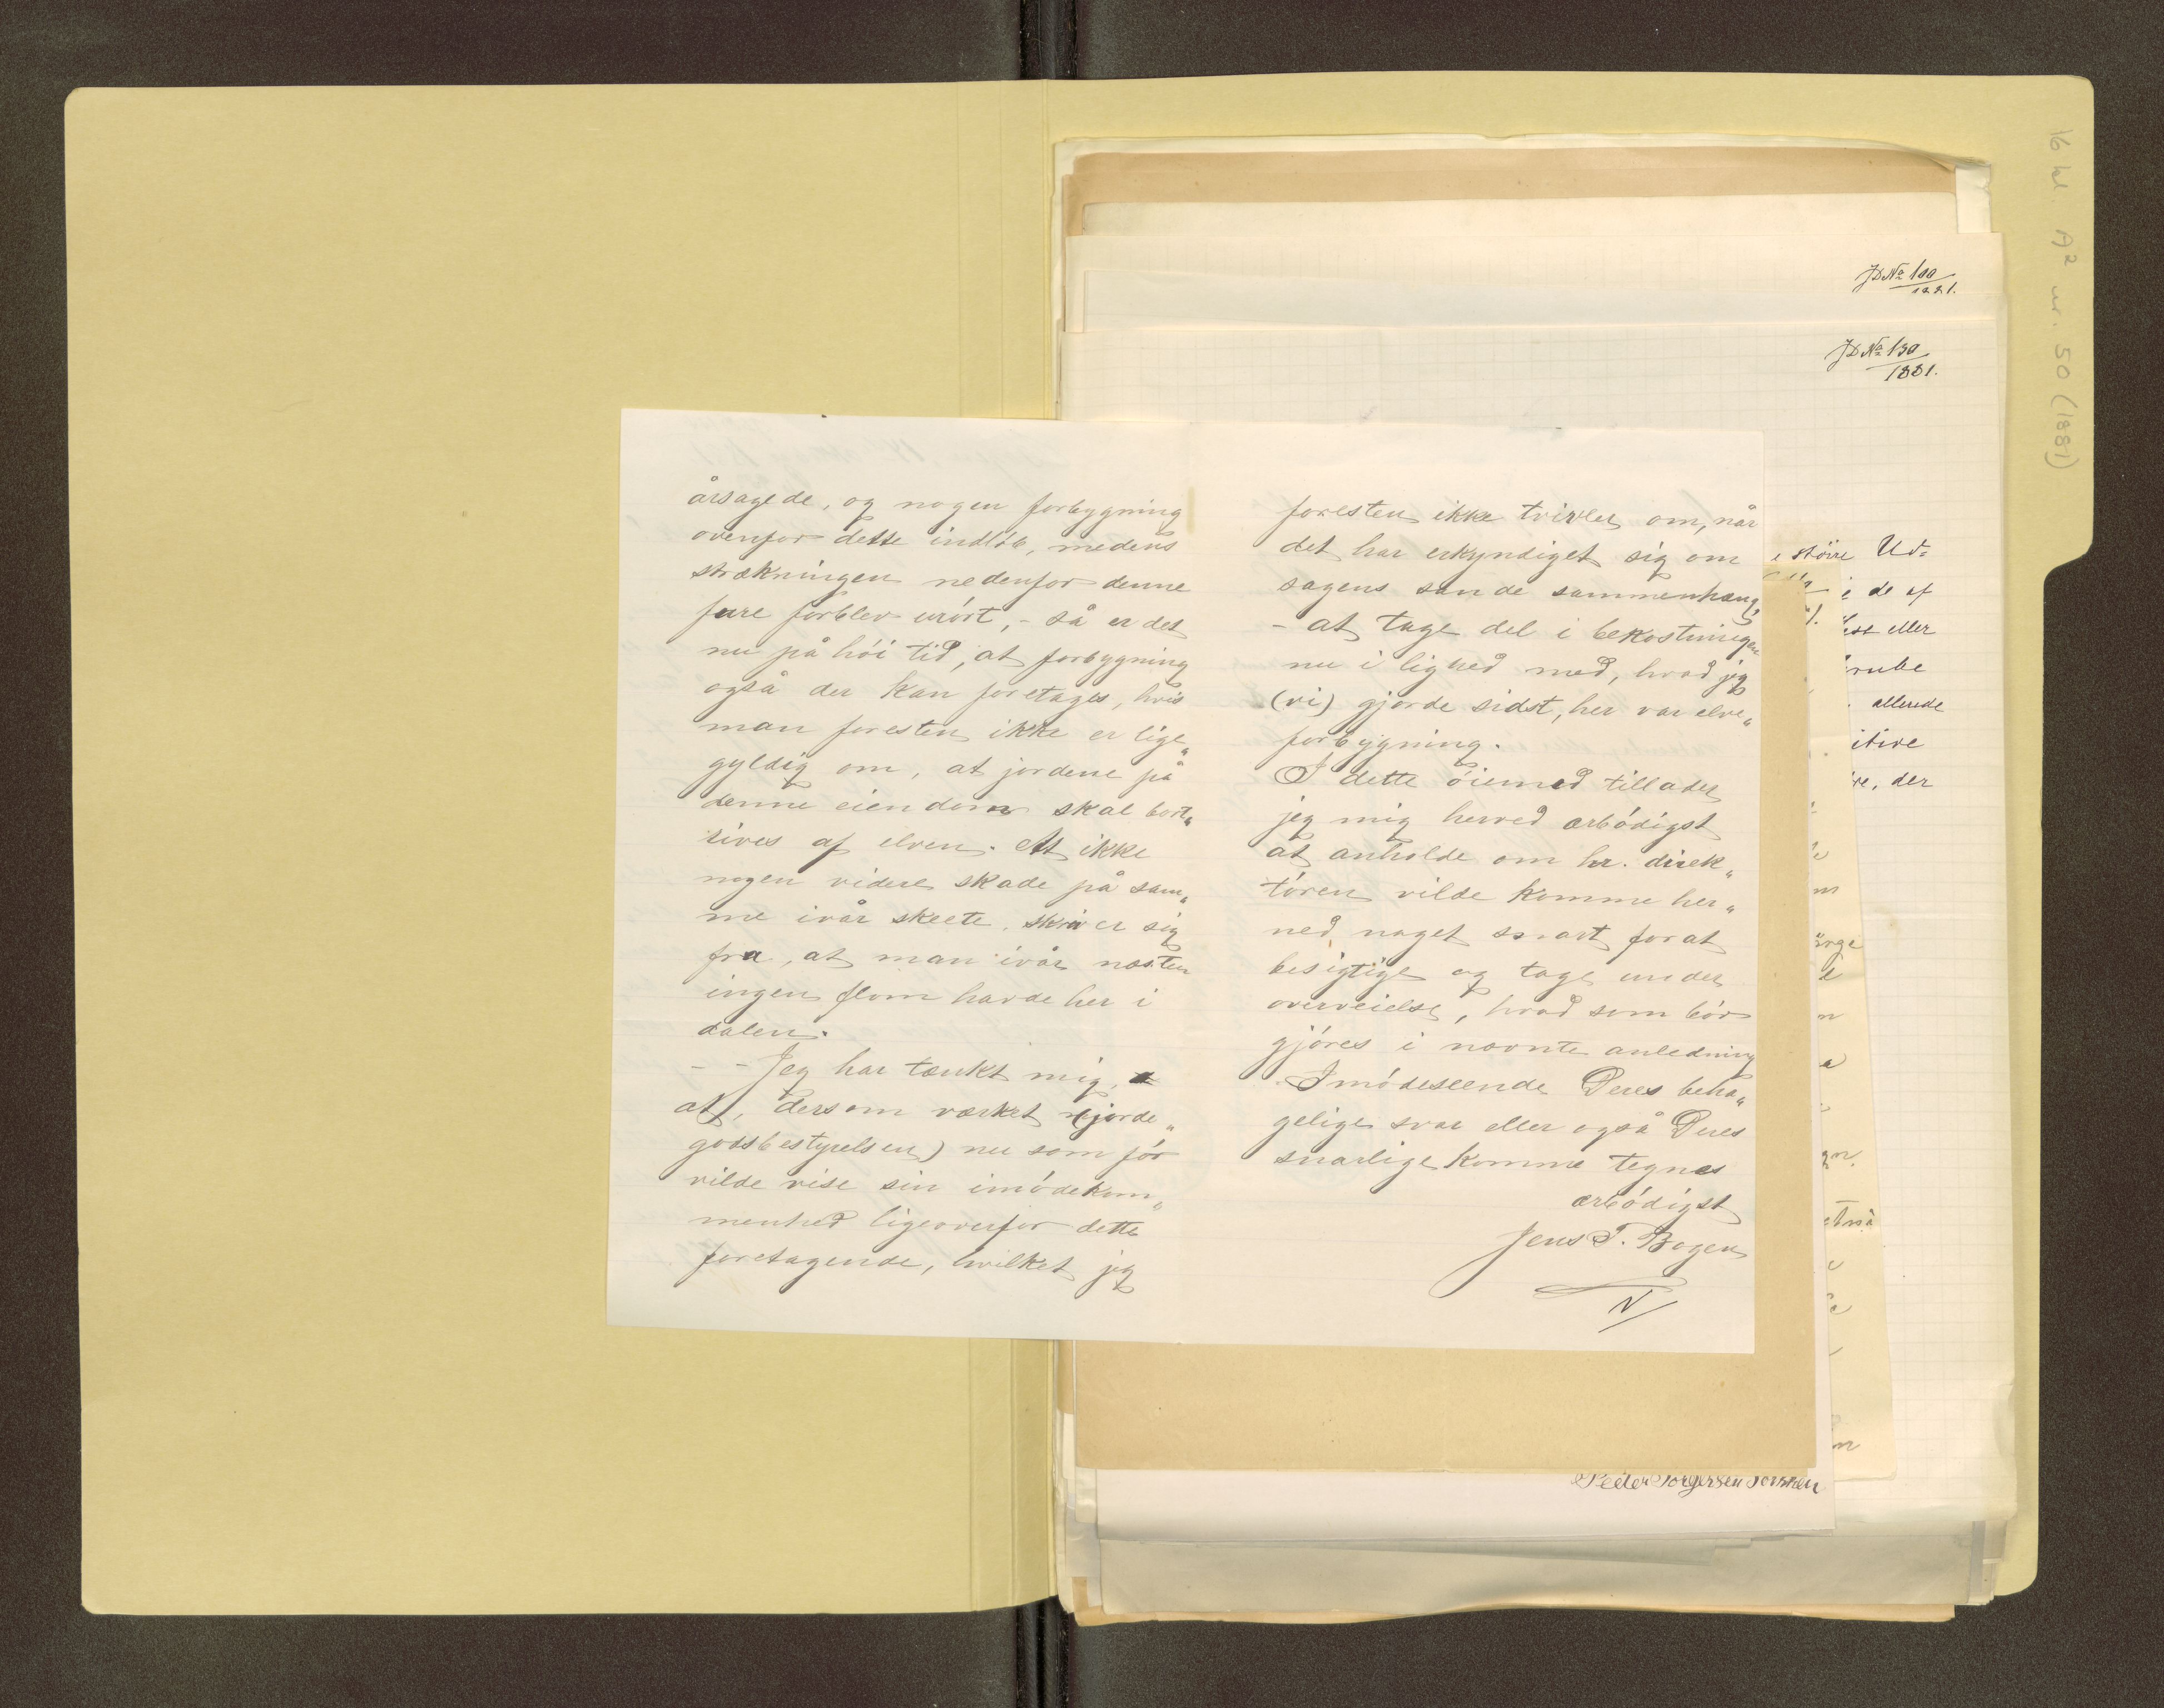 årsagede, og nogen forbygning
ovenfor dette indløb, medens
strækningen nedenfor denne
fure forblev urórt, - så er det
nu på hói tid, at forbygning
også der kan foretages, hvis
man foresten ikke er lige„
gyldig om, at jordene på
denne eiendom skal bort„
rives af elven. At ikke
nogen videre skade på sam„
me ivår skeete, skriver sig
fra, at man ivår næsten
ingen flom havde her i
dalen.
- - Jeg har tænkt mig,
at, dersom værket (jorde„
godsbestyrelsen) nu som fór
vilde vise sin imódekom„
menhed ligeoverfor dette
foretagende, hvilket jeg
foresten ikke tvivler om, når
det har erkyndiget sig om
sagens sande sammenhæng,
- at tage del i bekostningen
nu i lighed med, hvad jeg
(vi) gjorde sidst, her var elve„
forbygning.
I dette óiemed tillader
jeg mig herved ærbódigst
at anholde om hr. direk„
tóren vilde komme her„
ned noget snart for at
besigtige og tage under
overveielse, hvad som bór
gjóres i nævnte anledning
Imódeseende Deres beha„
gelige svar eller også Deres
snarlige komme tegnes
ærbódigst
Jens T. Bogen
N/
JD No 130
1881.
JD No 130
1881.
større Ud=
de af
eller
allerede
der
Peder Torgersen
16 kl. A2 nr. 50 (1881)